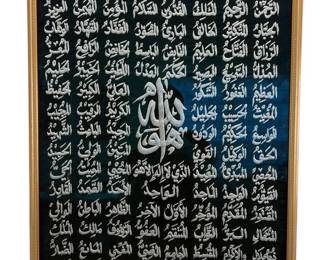 الرحمن الرحيم الملك القدوس السلام المؤمن المهيمن العزيز
الجبار المتكبر الخالق البارئ المصور الغفار القهار الوهاب
الرزاق الفتاح العليم القابض الباسط الخافض الرافع المعز
المذل السميع البصير الحكم العدل اللطيف الخبير الحليم
العظيم الغفور الشكور العلي الكبير الحفيظ
المقيت الحسيب الجليل الله الكريم الرقيب المجيب
الواسع الحكيم الودود هو المجيد الباعث الشهيد
الحق الوكيل القوي المتين الولي الحميد
المحصي المبدئ المعيد الذي لا إله إلا هو المحيي المميت الحي
القيوم الواجد الماجد الواحد الأحد الصمد القادر
المقتدر المقدم المؤخر الأول الآخر الظاهر الباطن الوالي
المتعالي البر التواب المنتقم العفو الرؤوف مالك الملك
ذو الجلال والإكرام المقسط الجامع الغني المغني المانع الضار